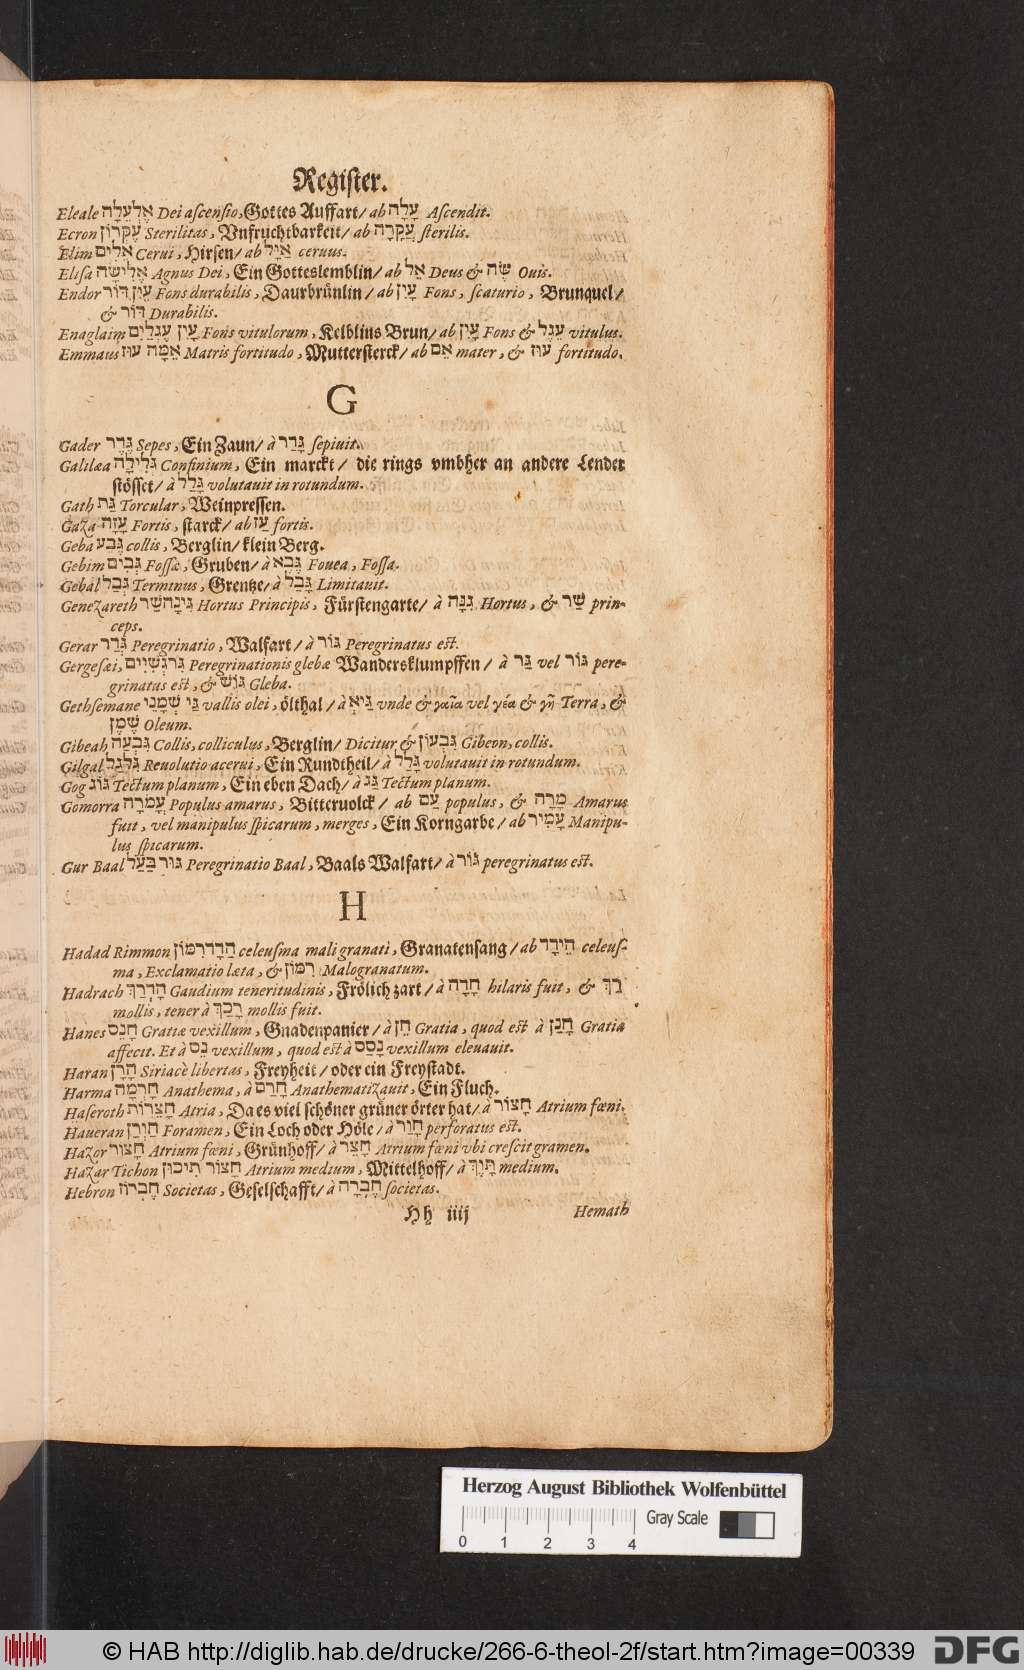 Register.
Eleale אֶלְעָלֵה Dei aſcenſio, Gottes Auffart/ ab עָלָה Aſcendit.
Ecron עֶקְרוֹן Sterilitas, Vnfruchtbarkeit/ ab עֲקָרָה ſterilis.
Elim אֵלִים Cerui, Hirſen/ ab אַיָל ceruus.
Eliſa אֱלִישֶׂה Agnus Dei, Ein Gotteslemblin/ ab אֵל Deus & שֶׂה Ouis.
Endor עֵין דּוֹר Fons durabilis, Daurbrünlin/ ab עַיִן Fons, ſcaturio, Brunquel/
& דּוֹר Durabilis.
Enaglaim עֵין עֶגְלַיִם Fons vitulorum, Kelblins Brun/ ab עַיִן Fons & עֵגֶל vitulus.
Emmaus אִמָּה עוּז Matris fortitudo, Mutterſterck/ ab אֵם mater, & עוּז fortitudo.
G
Gader גֶּדֶר Sepes, Ein Zaun/ à גָּדַר ſepiuit.
Galilæa גְּלִילָה Confinium, Ein marckt/ die rings vmbher an andere Lender
ſtöſſet/ à גָּלַל volutauit in rotundum.
Gath גַּת Torcular, Weinpreſſen.
Gaza עַזָּה Fortis, ſtarck/ ab עַז fortis.
Geba גֶּבַע collis, Berglin/ klein Berg.
Gebim גֵּבִים Foſſæ, Gruben/ à גֶּבֶא Fouea, Foſſa.
Gebal גְּבַל Terminus, Grentze/ à גָּבַל Limitauit.
Genezareth גִּינָה שַׂר Hortus Principis, Fürſtengarte/ à גִּנָּה Hortus, & שַׂר prin-
ceps.
Gerar גְּרָר Peregrinatio, Walfart/ à גּוֹר Peregrinatus eſt.
Gergeſæi, גִּרְגָּשִׁיִים Peregrinationis glebæ Wandersklumpffen/ à גַּר vel גּוֹר pere-
grinatus eſt, & גּוּשׁ Gleba.
Gethſemane גֵּי שְׁמָנֵי vallis olei, ölthal/ à גַּיְא vnde & γαῖα vel γέα & γῆ Terra, &
שֶׁמֶן Oleum.
Gibeah גִּבְעָה Collis, colliculus, Berglin/ Dicitur & גִּבְעוֹן Gibeon, collis.
Gilgal גִּלְגָּל Reuolutio acerui, Ein Rundtheil/ à גָּלַל volutauit in rotundum.
Gog גּוֹג Tectum planum, Ein eben Dach/ à גַּג Tectum planum.
Gomorra עֲמֹרָה Populus amarus, Bitteruolck/ ab עַם populus, & מָרָה Amarus
fuit, vel manipulus ſpicarum, merges, Ein Korngarbe/ ab עָמִיר Manipu-
lus ſpicarum.
Gur Baal גּוּר בַּעַל Peregrinatio Baal, Baals Walfart/ à גּוֹר peregrinatus eſt.
H
Hadad Rimmon הֲדָדרִמּוֹן celeuſma mali granati, Granatenſang/ ab הֵידָד celeuſ-
ma, Exclamatio læta, & רִמּוֹן Malogranatum.
Hadrach הַדְרָךְ Gaudium teneritudinis, Frölich zart/ à חָדָה hilaris fuit, & רַךְ
mollis, tener à רָכַךְ mollis fuit.
Hanes חָנֵס Gratiæ vexillum, Gnadenpanier/ à חֵן Gratia, quod eſt à חָנַן Gratia
affecit. Et à נֵס vexillum, quod eſt à נָסַס vexillum eleuauit.
Haran חָרָן Siriacè libertas, Freyheit/ oder ein Freyſtadt.
Harma חָרְמָה Anathema, à חָרַם Anathematizauit, Ein Fluch.
Haſeroth חֲצֵרוֹת Atria, Da es viel ſchöner grüner örter hat/ à חָצוֹר Atrium fœni.
Haueran חַוְרָן Foramen, Ein Loch oder Höle/ à חָוַר perforatus eſt.
Hazor חָצוֹר Atrium fœni, Grünhoff/ à חָצֵר Atrium fœni vbi creſcit gramen.
Hazar Tichon חָצוֹר תִּיכוֹן Atrium medium, Mittelhoff/ à תָּוֶךְ medium.
Hebron חֶבְרוֹן Societas, Geſelſchafft/ à חֶבְרָה ſocietas.
Hh iiij Hemath
Herzog August Bibliothek Wolfenbüttel
Gray Scale
0 1 2 3 4
© HAB http://diglib.hab.de/drucke/266-6-theol-2f/start.htm?image=00339
DFG